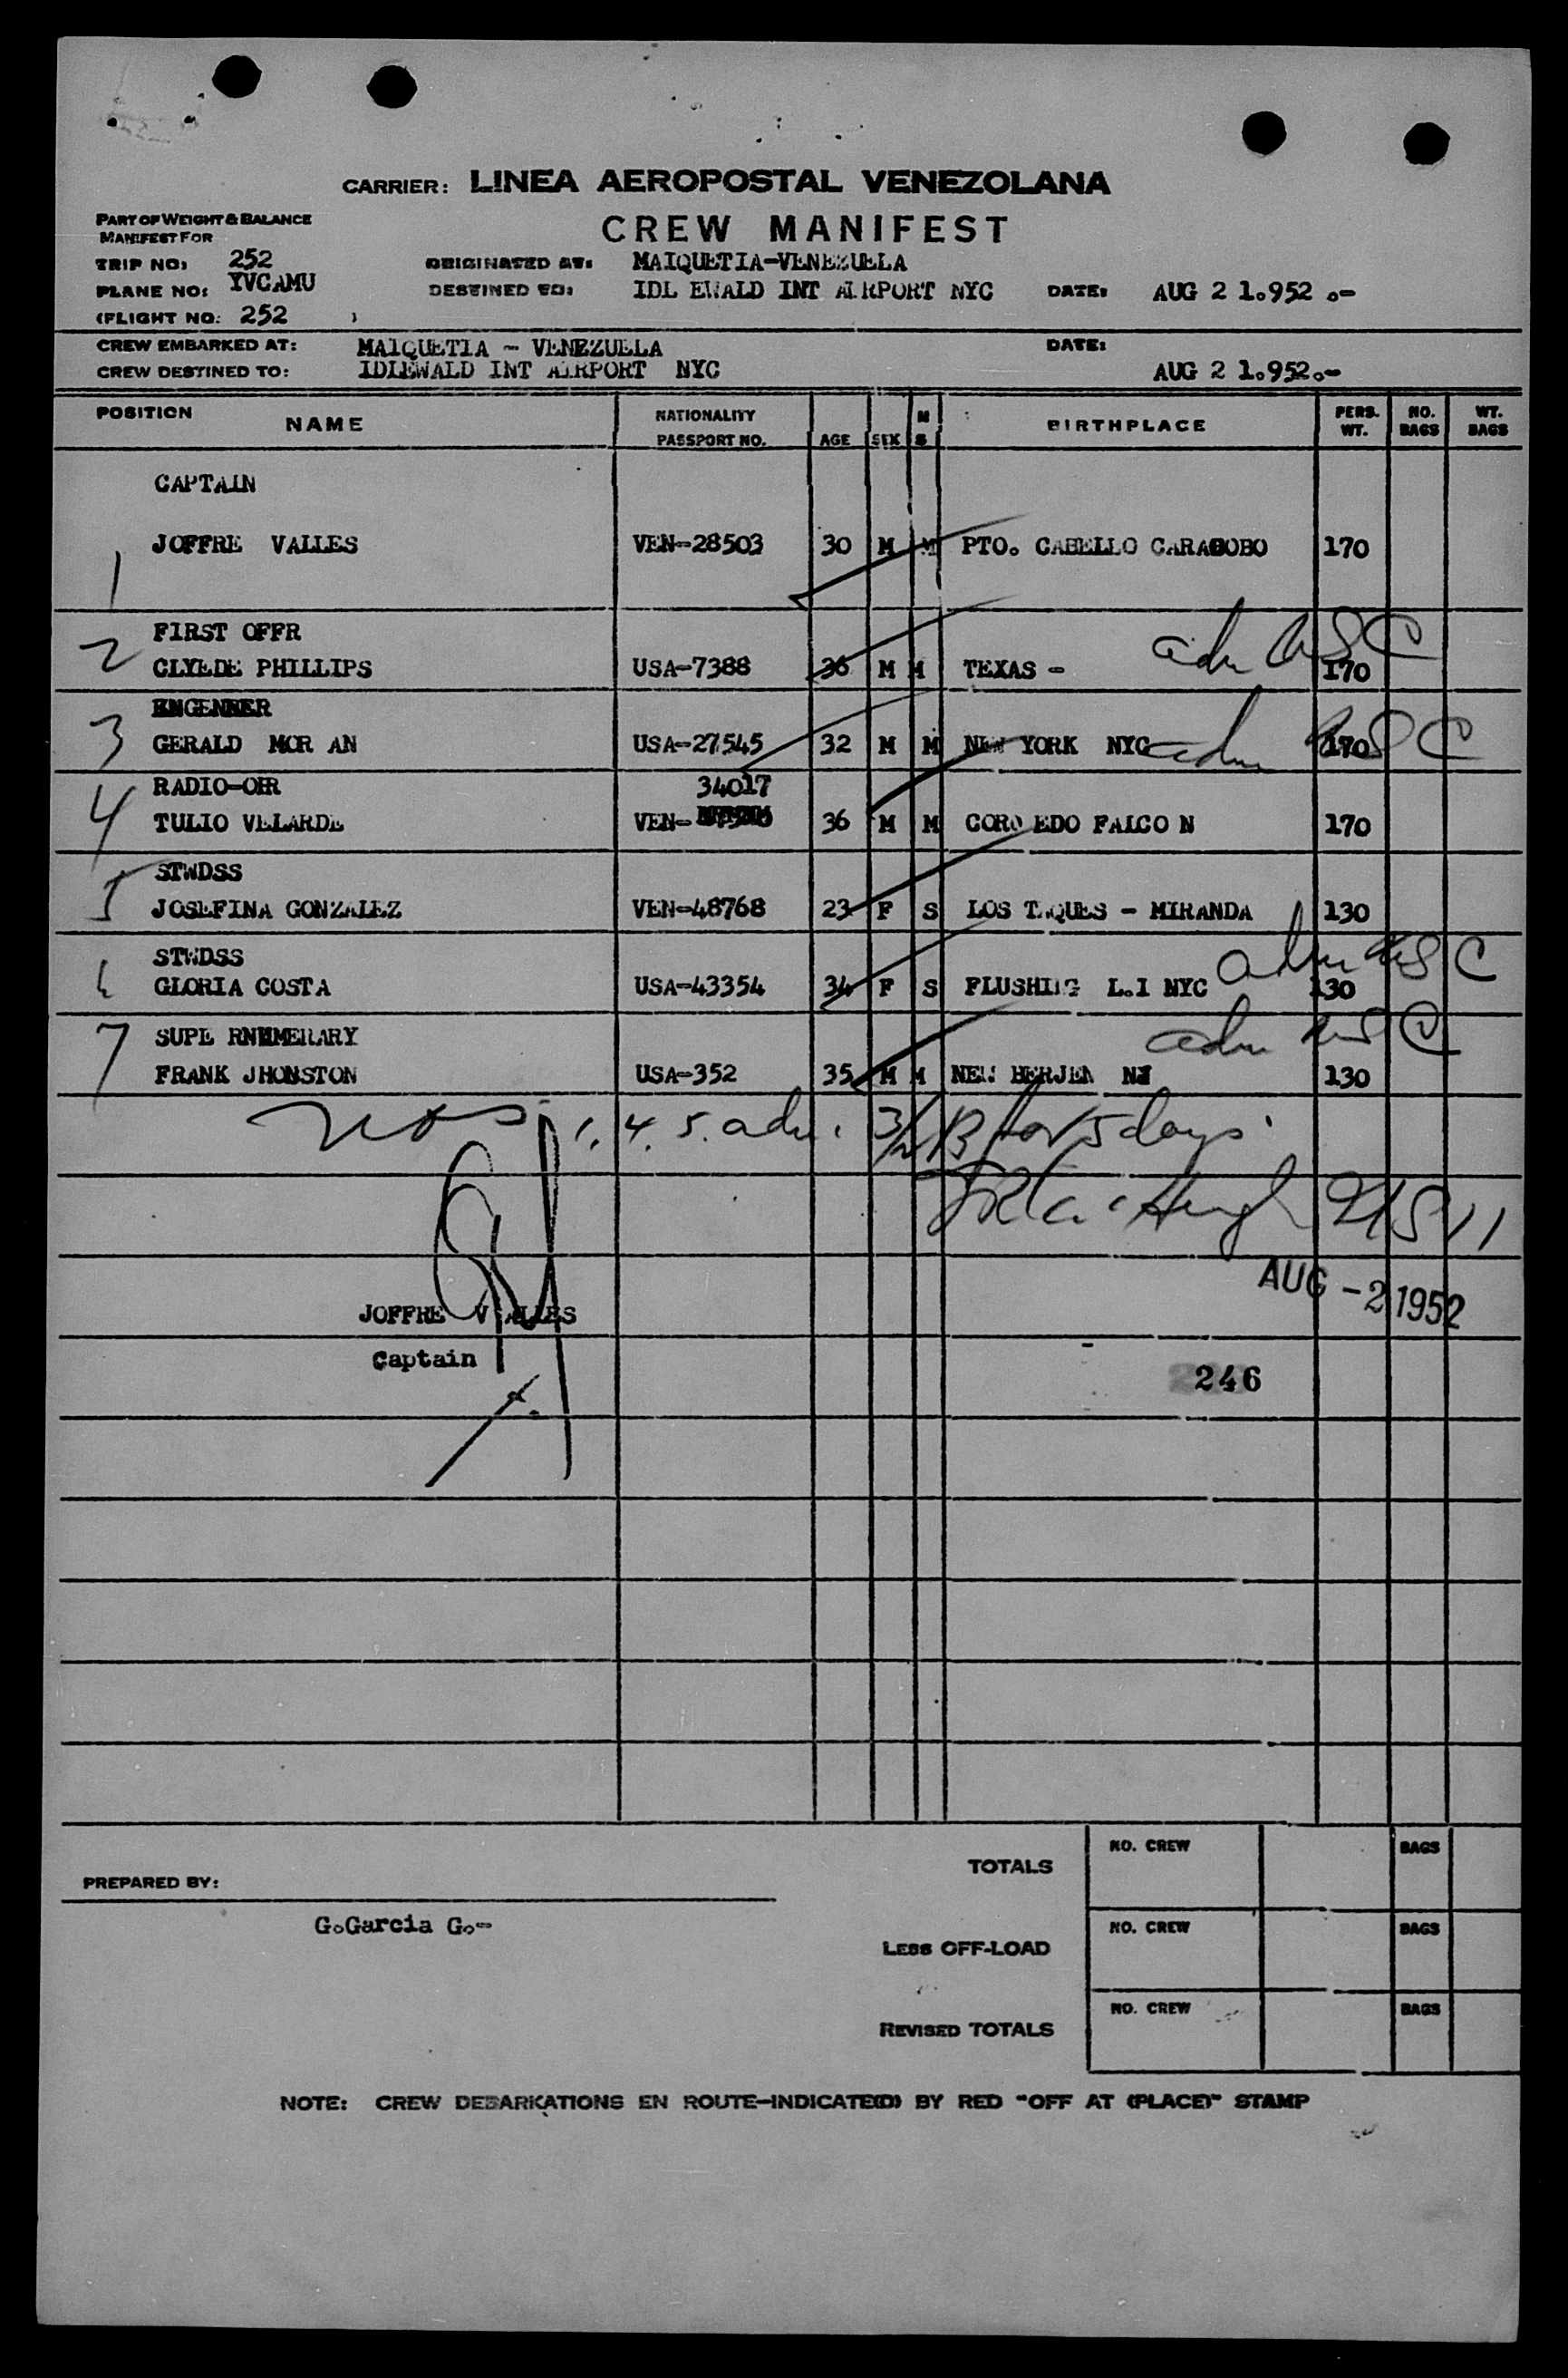 CARRIER: LINEA AEROPOSTAL VENEZOLANA
PART OF WEIGHT & BALANCE
MANIFEST FOR
CREW MANIFEST
TRIP NO: 252 ORIGINATED AT: MAIQUETIA-VENEZUELA
PLANE NO: YVCAMU DESTINED TO: IDL EWALD INT AIRPORT NYC DATE: AUG 2 1.952 .-
(FLIGHT NO: 252 )
CREW EMBARKED AT: MAIQUETIA - VENEZUELA DATE:
CREW DESTINED TO: IDLEWALD INT AIRPORT NYC AUG 2 1.952.-
POSITION NAME NATIONALITY PASSPORT NO. AGE SEX M S BIRTHPLACE PERS. WT. NO. BAGS WT. BAGS
CAPTAIN
1 JOFFRE VALLES VEN-28503 30 M M PTO. CABELLO CARABOBO 170
2 FIRST OFFR
CLYEDE PHILLIPS USA-7388 36 M M TEXAS - 170 adm USC
3 ENGENEER
GERALD MOR AN USA-27545 32 M M NEW YORK NYC 170 adm USC
4 RADIO-OER 34017
TULIO VELARDE VEN- 36 M M CORO EDO FALCO N 170
5 STWDSS
JOSEFINA GONZALEZ VEN-48768 23 F S LOS TEQUES - MIRANDA 130
6 STWDSS
GLORIA COSTA USA-43354 34 F S FLUSHING L.I NYC 130 adm USC
7 SUPE RNUMERARY
FRANK JHONSTON USA-352 35 M M NEW HERJEN NJ 130 adm USC
Nos. 1. 4. 5. adm. 3/2 B for 5 days.
AUG -2 1952
JOFFRE V ALLES
Captain
246
TOTALS NO. CREW BAGS
PREPARED BY:
G.Garcia G.-
LESS OFF-LOAD NO. CREW BAGS
REVISED TOTALS NO. CREW BAGS
NOTE: CREW DEBARKATIONS EN ROUTE-INDICATE(D) BY RED "OFF AT (PLACE)" STAMP